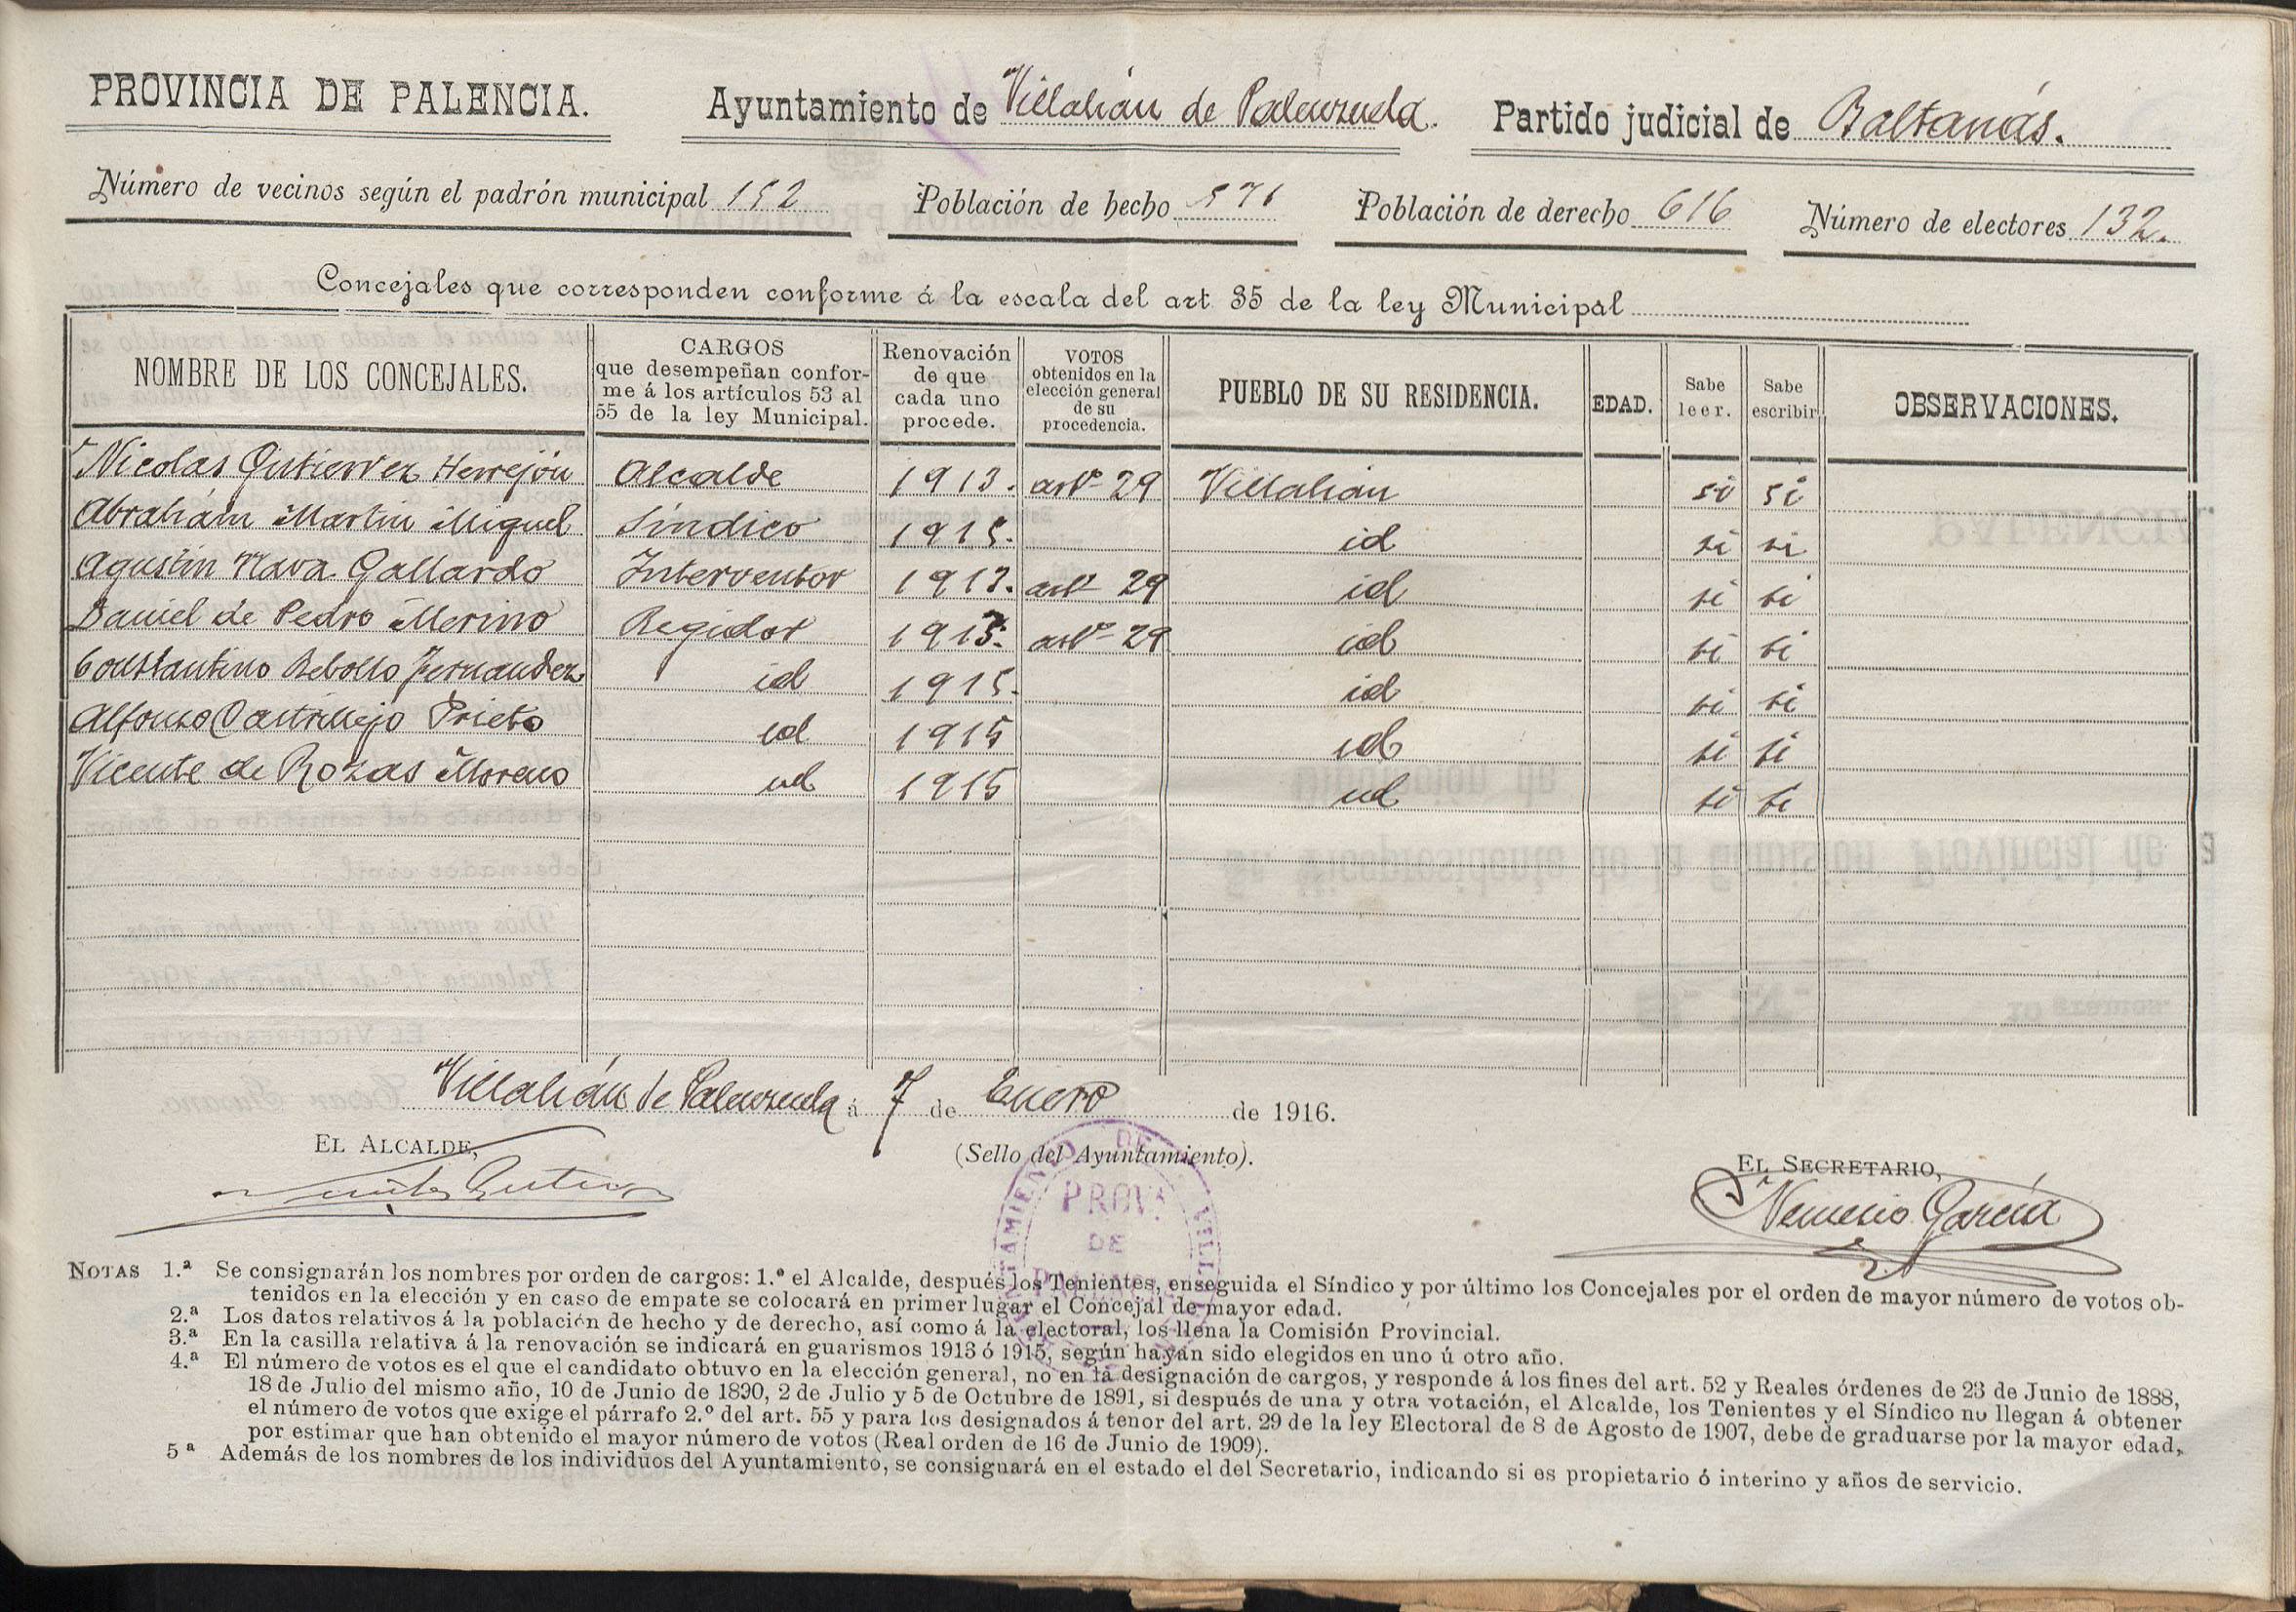 PROVINCIA DE PALENCIA. Ayuntamiento de Villahán de Palenzuela. Partido judicial de Baltanás.
Número de vecinos según el padrón municipal 152 Población de hecho 571 Población de derecho 616 Número de electores 132.
Concejales que corresponden conforme á la escala del art 35 de la ley Municipal
NOMBRE DE LOS CONCEJALES. CARGOS que desempeñan conforme á los artículos 53 al 55 de la ley Municipal. Renovación de que cada uno procede. VOTOS obtenidos en la elección general de su procedencia. PUEBLO DE SU RESIDENCIA. EDAD. Sabe leer. Sabe escribir OBSERVACIONES.
Nicolas Gutierrez Herrejón Alcalde 1913. artº 29 Villahán si si
Abrahám Martin Miguel Síndico 1915. id si si
Agustin Nava Gallardo Interventor 1913. artº 29 id si si
Daniel de Pedro Merino Regidor 1913. artº 29 id si si
Constantino Rebollo Fernandez id 1915. id si si
Alfonso Castrillejo Prieto id 1915 id si si
Vicente de Rozas Moreno id 1915 id si si
Villahán de Palenzuela á 7 de Enero de 1916.
EL ALCALDE, (Sello del Ayuntamiento). EL SECRETARIO,
Nemesio García
PROV.
DE
NOTAS 1.ª Se consignarán los nombres por orden de cargos: 1.º el Alcalde, después los Tenientes, enseguida el Síndico y por último los Concejales por el orden de mayor número de votos ob-
tenidos en la elección y en caso de empate se colocará en primer lugar el Concejal de mayor edad.
2.ª Los datos relativos á la población de hecho y de derecho, así como á la electoral, los llena la Comisión Provincial.
3.ª En la casilla relativa á la renovación se indicará en guarismos 1913 ó 1915, según hayan sido elegidos en uno ú otro año.
4.ª El número de votos es el que el candidato obtuvo en la elección general, no en la designación de cargos, y responde á los fines del art. 52 y Reales órdenes de 23 de Junio de 1888,
18 de Julio del mismo año, 10 de Junio de 1890, 2 de Julio y 5 de Octubre de 1891, si después de una y otra votación, el Alcalde, los Tenientes y el Síndico no llegan á obtener
el número de votos que exige el párrafo 2.º del art. 55 y para los designados á tenor del art. 29 de la ley Electoral de 8 de Agosto de 1907, debe de graduarse por la mayor edad,
por estimar que han obtenido el mayor número de votos (Real orden de 16 de Junio de 1909).
5ª Además de los nombres de los individuos del Ayuntamiento, se consignará en el estado el del Secretario, indicando si es propietario ó interino y años de servicio.